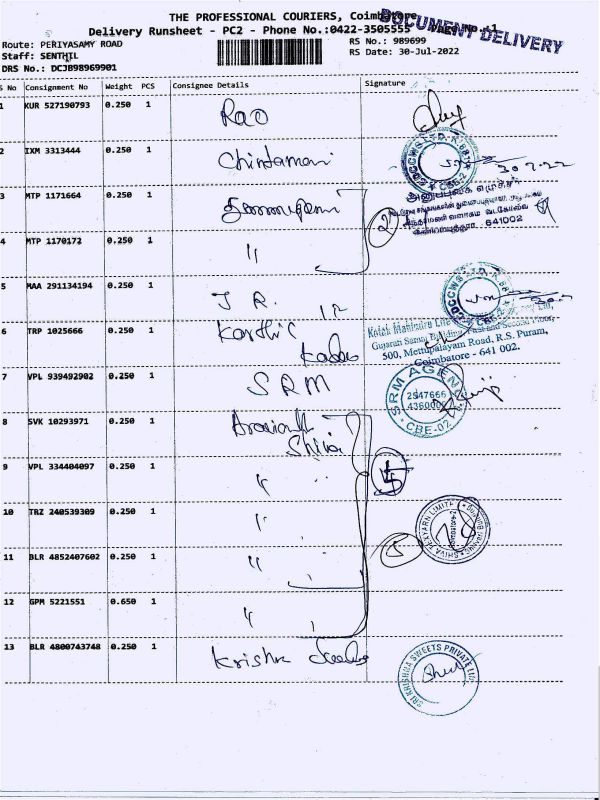 THE PROFESSIONAL COURIERS, Coimbatore
DOCUMENT DELIVERY
Delivery Runsheet - PC2 - Phone No.:0422-3505555 Page No.:1
Route: PERIYASAMY ROAD
RS No.: 989699
Staff: SENTHIL
RS Date: 30-Jul-2022
DRS No.: DCJB98969901
S No Consignment No Weight PCS Consignee Details Signature
1 KUR 527190793 0.250 1 Rao
2 IXM 3313444 0.250 1 Chintamani
30-7-22
3 MTP 1171664 0.250 1
641002
2
4 MTP 1170172 0.250 1 "
5 MAA 291134194 0.250 1 J R.
6 TRP 1025666 0.250 1 Karthic
Kotak Mahindra Life
Gujarati Samaj Building, East and Second Floor,
500, Mettupalayam Road, R.S. Puram,
Coimbatore - 641 002.
7 VPL 939492902 0.250 1 SRM
SRM AGENC
2547666
CBE-02
8 SVK 10293971 0.250 1 Aravind
Shiva
9 VPL 334404097 0.250 1 "
5
10 TRZ 240539309 0.250 1 "
SHIVA TEXYARN LIMITED
11 BLR 4852407602 0.250 1 "
5
12 GPM 5221551 0.650 1 "
13 BLR 4800743748 0.250 1 Krishna
SRI KRISHNA SWEETS PRIVATE LTD